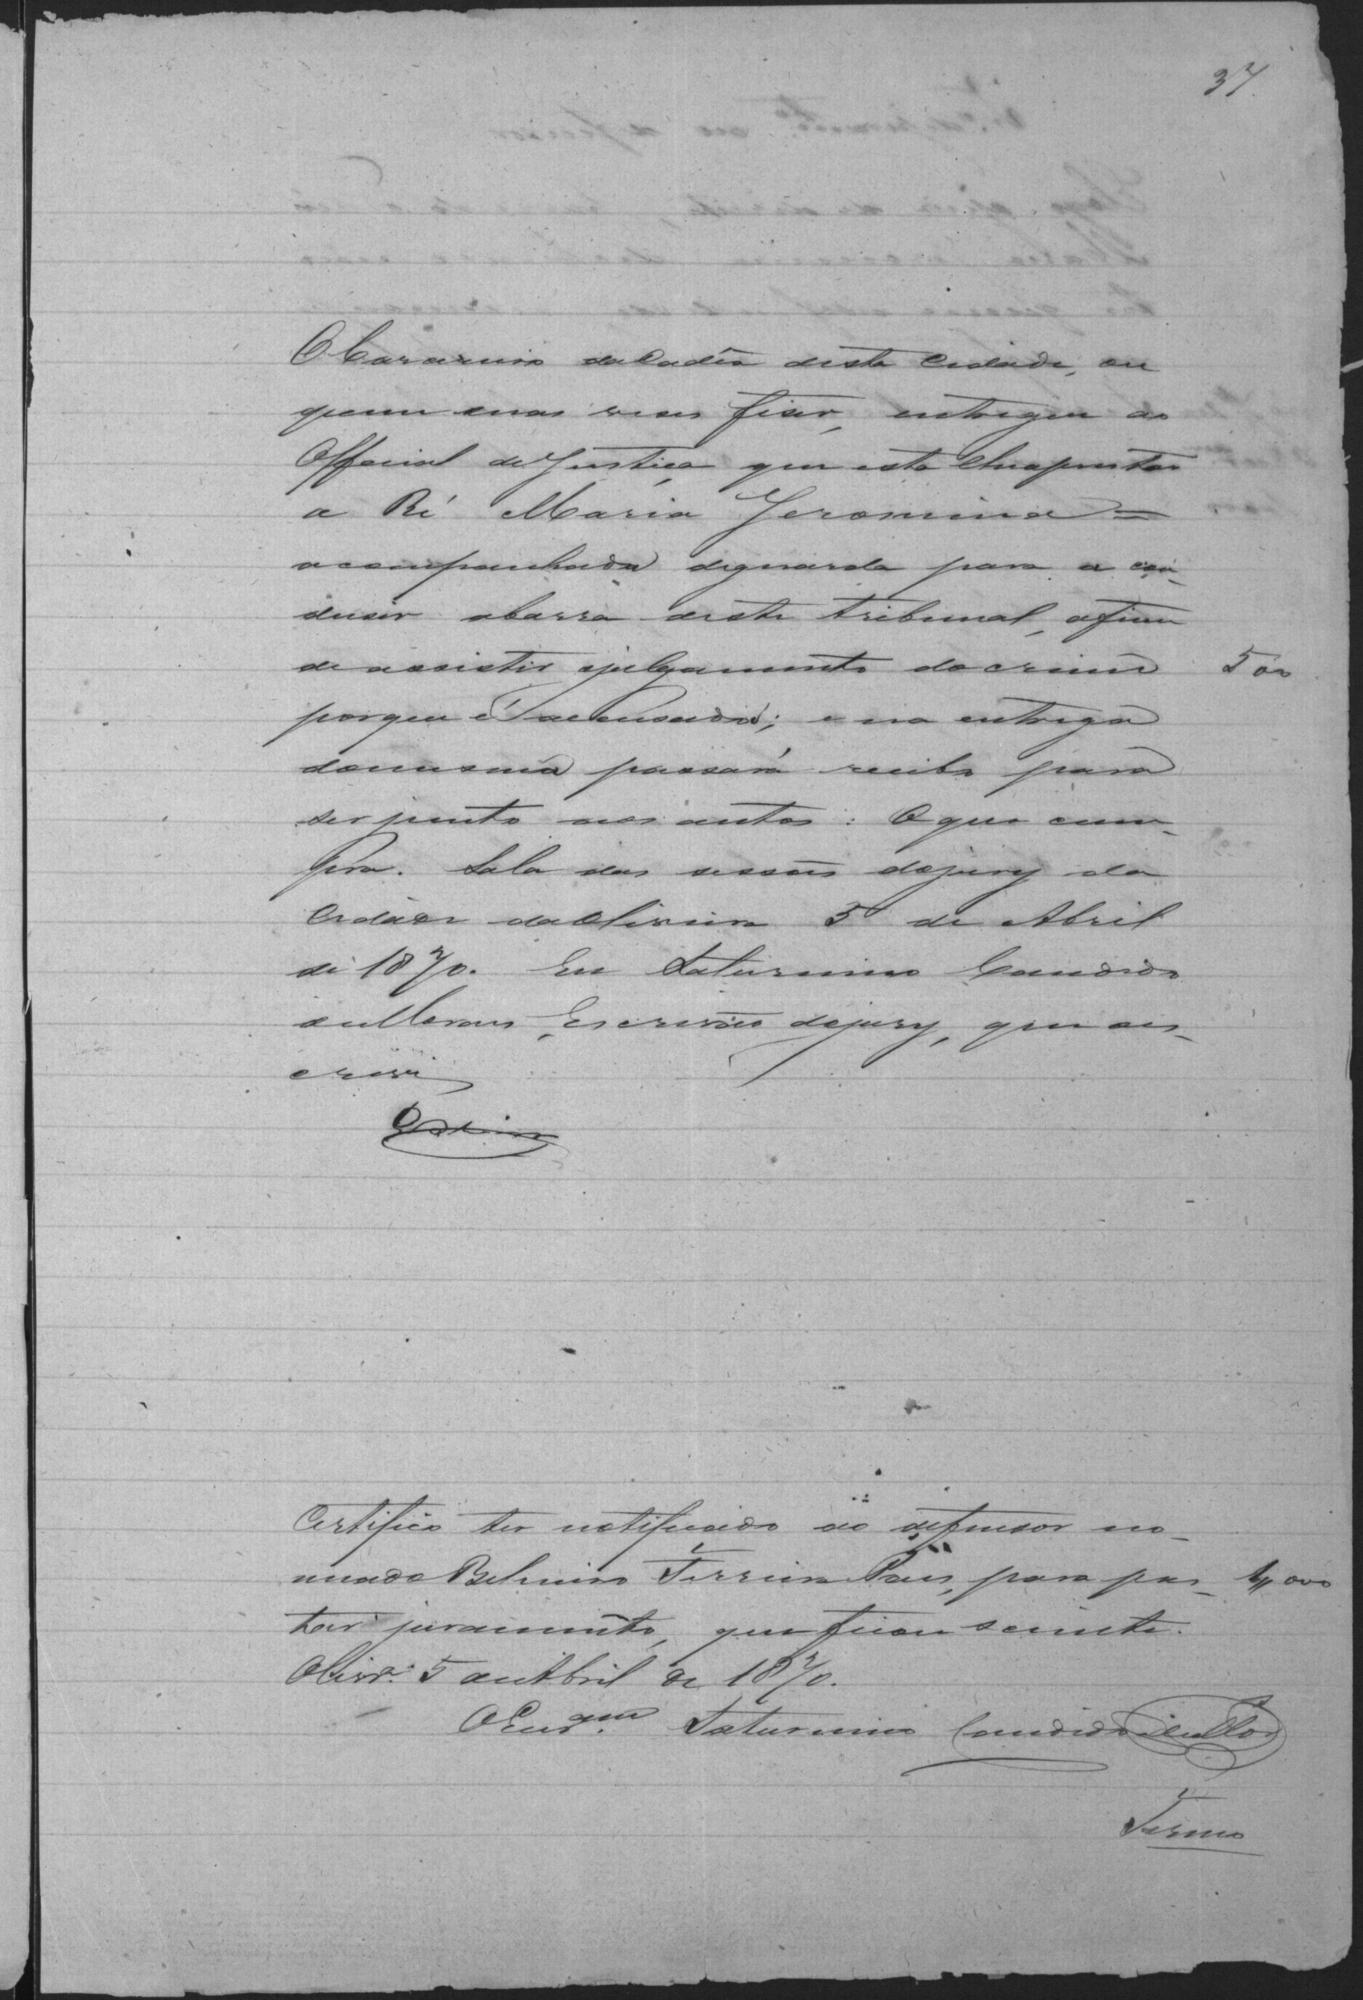 37
O Carcereiro da Cadêa desta Cidade, ou
quem suas veses fiser, entregue ao
Official de Justiça que este lhe aprentar
a Ré Maria Jeronima =
acompanhada de guarda para a con-
dusir a barra deste tribunal, afim
de assistir o julgamento do crime 500
porque é accusada; e na entrega
da mesma passará recibo para
ser junto aos autos: O que cum-
pra. Sala das sessões do jury da
Cidade da Oliveira 5 de Abril
de 1870. Eu Saturnino Candido
Escrivão do jury, que es-
crevi
Certifico ter notificado ao defensor no-
meado Belmiro Ferreira Paes, para pres- 4000
tar juramento, que ficou sciente.
Olivrª 5 de Abril de 1870.
Saturnino Candido
Termo